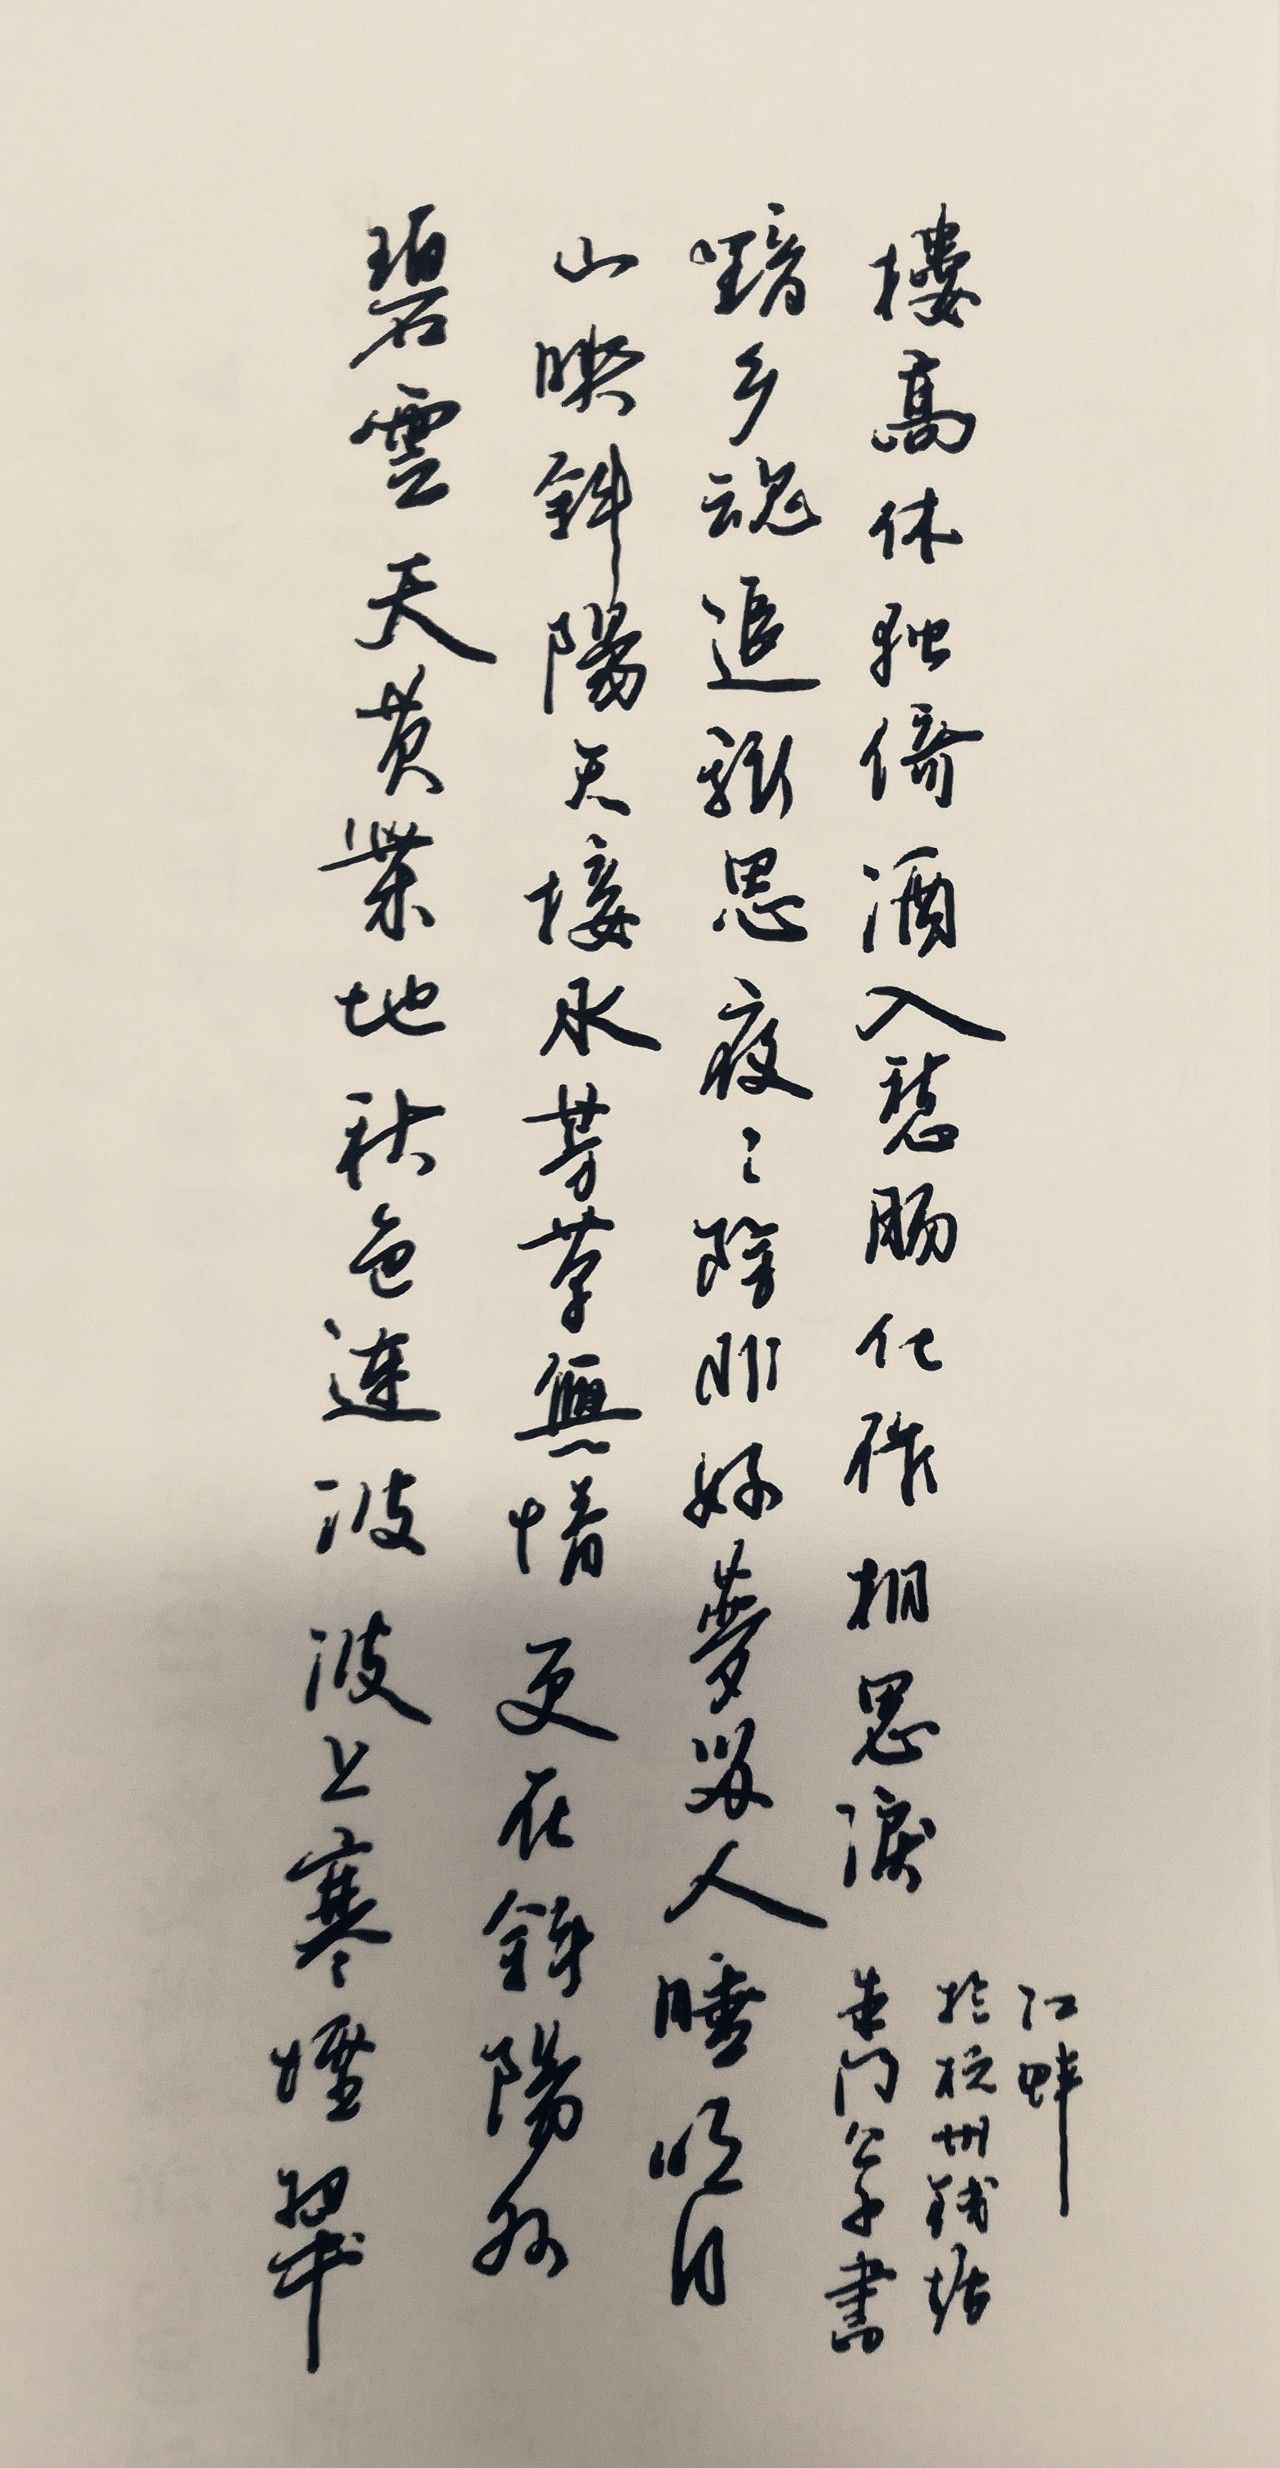 碧雲天黄葉地秋色連波波上寒煙翠
山映斜陽天接水芳草無情更在斜陽外
黯乡魂追旅思夜々除非好夢留人睡明月
樓高休独倚酒入愁肠化作相思淚
朱门公子書
於杭州钱塘
江畔